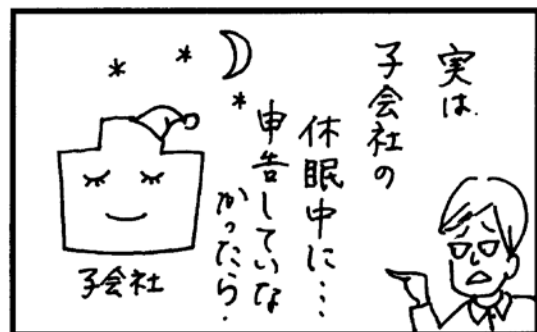 実は
子会社の
休眠中に…
申告していな
かったら・
子会社